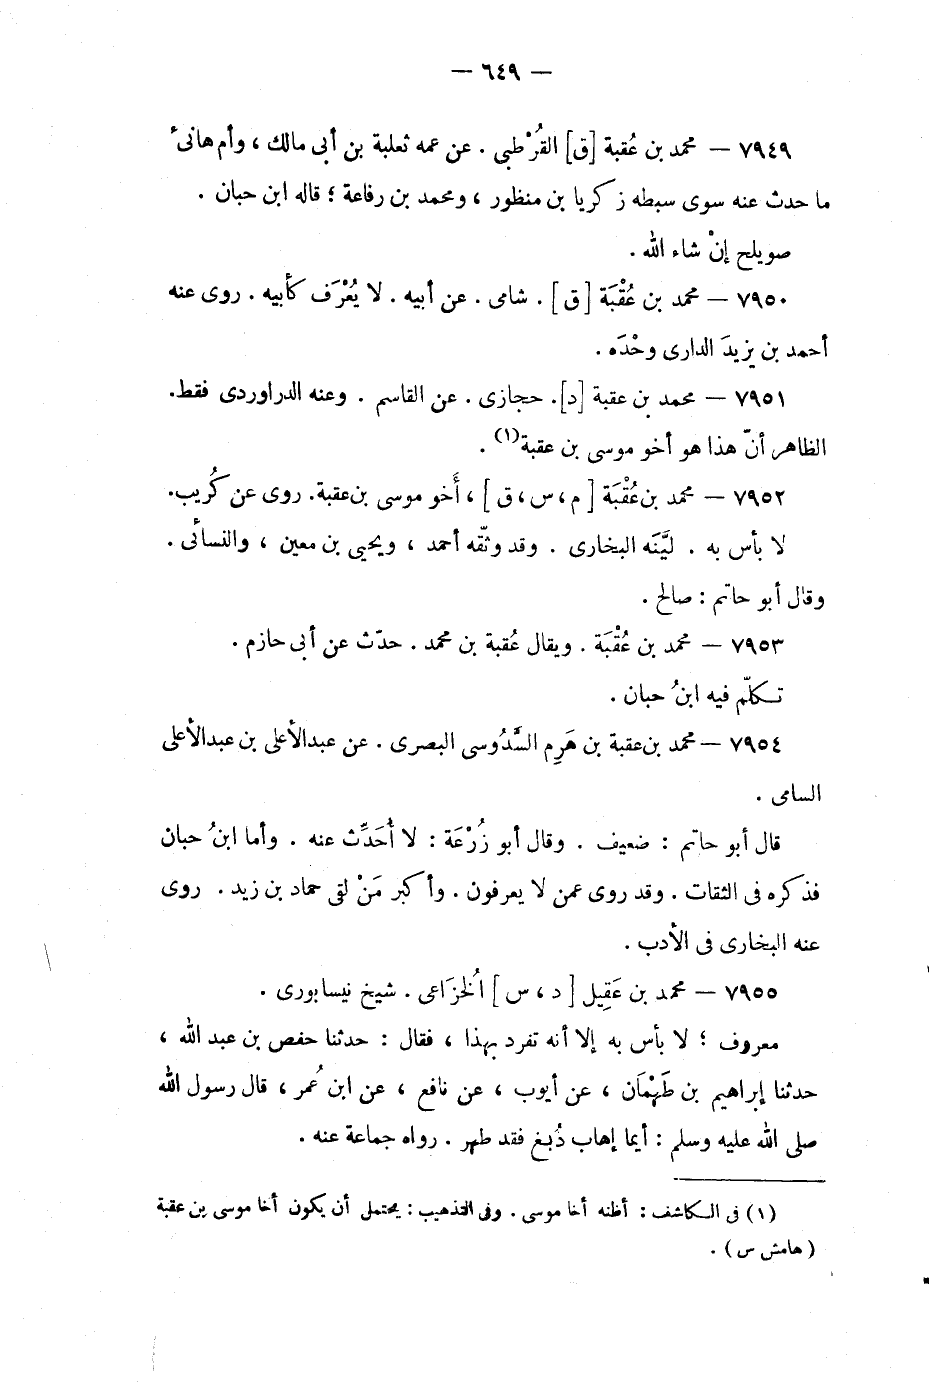 — ٦٤٩ —
٧٩٤٩ — محمد بن عُقبة [ق] القُرْطبى . عن عمه ثعلبة بن أبى مالك ، وأم هانىء
ما حدث عنه سوى سبطه زكريا بن منظور ، ومحمد بن رفاعة ؛ قاله ابن حبان .
صويلح إنْ شاء الله .
٧٩٥٠ — محمد بن عُقْبَة [ق] . شامى . عن أبيه . لا يُعْرَف كأبيه . روى عنه
أحمد بن يزيدَ الدارى وحْدَه .
٧٩٥١ — محمد بن عقبة [د]. حجازى . عن القاسم . وعنه الدراوردى فقط.
الظاهر أنّ هذا هو أخو موسى بن عقبة(١) .
٧٩٥٢ — محمد بن عُقْبَة [ م ، س ، ق ] ، أَخو موسى بن عقبة. روى عن كُريب.
لا بأس به . ليَّنَه البخارى . وقد وثّقه أحمد ، ويحيى بن معين ، والنسأئى .
وقال أبو حاتم : صالح .
٧٩٥٣ — محمد بن عُقْبَة . ويقال عُقبة بن محمد . حدّث عن أبى حازم .
تـكلّم فيه ابنُ حبان .
٧٩٥٤ — محمد بن عقبة بن هَرِم السَّدُوسى البصرى . عن عبدالأعلى بن عبدالأعلى
السامى .
قال أبو حاتم : ضعيف . وقال أبو زُرْعَة : لا أُحَدِّث عنه . وأما ابنُ حبان
فذكره فى الثقات . وقد روى عمن لا يعرفون . وأكبر مَنْ لقى حماد بن زيد . روى
عنه البخارى فى الأدب .
٧٩٥٥ — محمد بن عَقِيل [ د ، س ] الُخزَاعى . شيخ نيسابورى .
معروف ؛ لا بأس به إلا أنه تفرد بهذا ، فقال : حدثنا حفص بن عبد الله ،
حدثنا إبراهيم بن طَهْمَان ، عن أيوب ، عن نافع ، عن ابن عُمر ، قال رسول الله
صلى الله عليه وسلم : أيما إهاب دُبغ فقد طهر . رواه جماعة عنه .
(١) فى الـكاشف : أظنه أخا موسى . وفى التذهيب : يحتمل أن يكون أخا موسى بن عقبة
( هامش س ) .